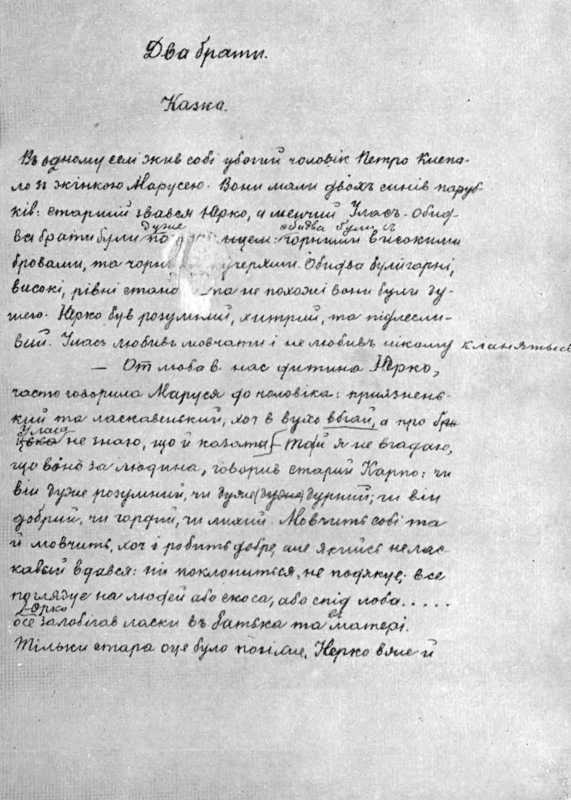 Два брати.
Казка.
Въ одному селі жив собі убогий чоловік Петро Киепа-
ло зъ жінкою Марусею. Вони мали двохъ синів паруб-
ків: старший звався Юрко, а менчий Уласъ. Обид-
дуже обидва були съ
ва брати були чорними високими
бровами, та Обидва були гарні,
високі, рівні та не похожі вони були ду-
шею. Юрко був розумний, хитрий, та підлесли-
вий. Уласъ любивъ мовчати і не любивъ нікому кланятысь
— От люба в нас дитина Юрко,
часто говорила Маруся до чоловіка: приязнень-
кий та ласкавенький, хоч в вухо вбгай, а про
Уласа
не знаю, що й казати — Та й я не вгадаю,
що воно за людина, говорив старий Карпо: чи
він дуже розумний, чи дуже дурний; чи він
добрий, чи гордий, чи лихий. Мовчить собі та
й мовчить, хоч і робить добре, але якийсь нелас-
кавый вдався: ні поклониться, не подякує; все
поглядує на людей або скоса, або спід лоба.....
Юрко
осе залобігав ласки въ батька та матері.
Тільки стара оце було Юрко вже й